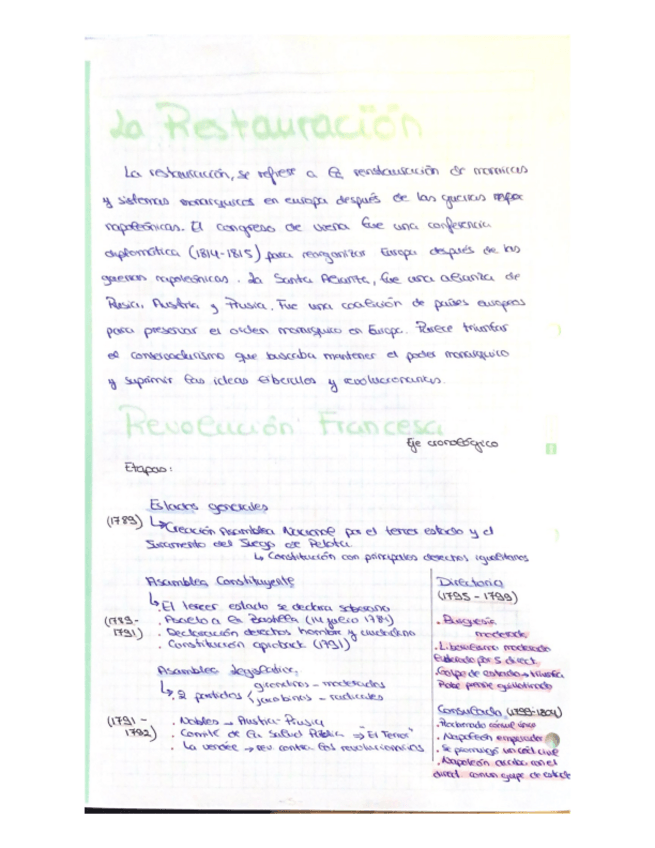 La Restauración
La restauración, se refiere a la reinstauración de monarcas
y sistemas monarquicos en europa después de las guerras
napoleónicas. El congreso de viena fue una conferencia
diplomática (1814-1815) para reorganizar Europa después de las
guerras napoleónicas. La Santa Alianza, fue una alianza de
Rusia, Austria y Prusia. Fue una coalición de países europeos
para preservar el orden monarquico en Europa. Parece triunfar
el que buscaba mantener el poder monarquico
y suprimir las ideas liberales y revolucionarias.
Revolución Francesa
Eje cronológico
Etapas:
Estados generales
(1789) ↳ Creación Asamblea Nacional por el tercer estado y el
Juramento del Juego de Pelota.
↳ Constitución con principales derechos igualitarios
Asamblea Constituyente
↳ . El tercer estado se declara soberano
(1789- . Asalto a la Bastilla (14 julio 1789)
1791) . Declaración derechos hombre y ciudadano
. Constitución aprobada (1791)
Asamblea legislativa,
↳ . 2 partidos girondinos - moderados
jacobinos - radicales
(1791 - . Nobles → Austria-Prusia
1792) . Comité de la Salud Pública ⇒ "El Terror"
. La vendée → rev. contra los revolucionarios
Directorio
(1795 - 1799)
. Burguesía
moderada
. Liberalismo moderado
por 5 direct.
. Golpe de estado → triunfa
guillotinado
Consulado (1799-1804)
. cónsul único
. Napoleón emperador
. Se promulgó un cód. civil
. Napoleón acaba con el
direct. con un golpe de estado